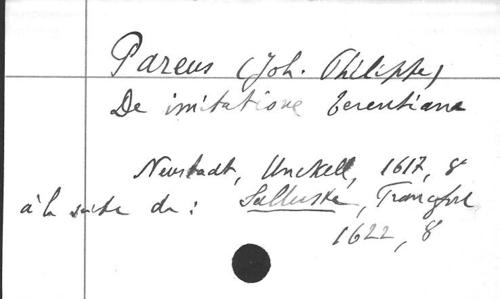 Pareus (Joh. Philippe)
De imitatione terentiana
Neustadt, Unckell, 1617, 8
à la suite de : Salluste, Francfort
1622, 8